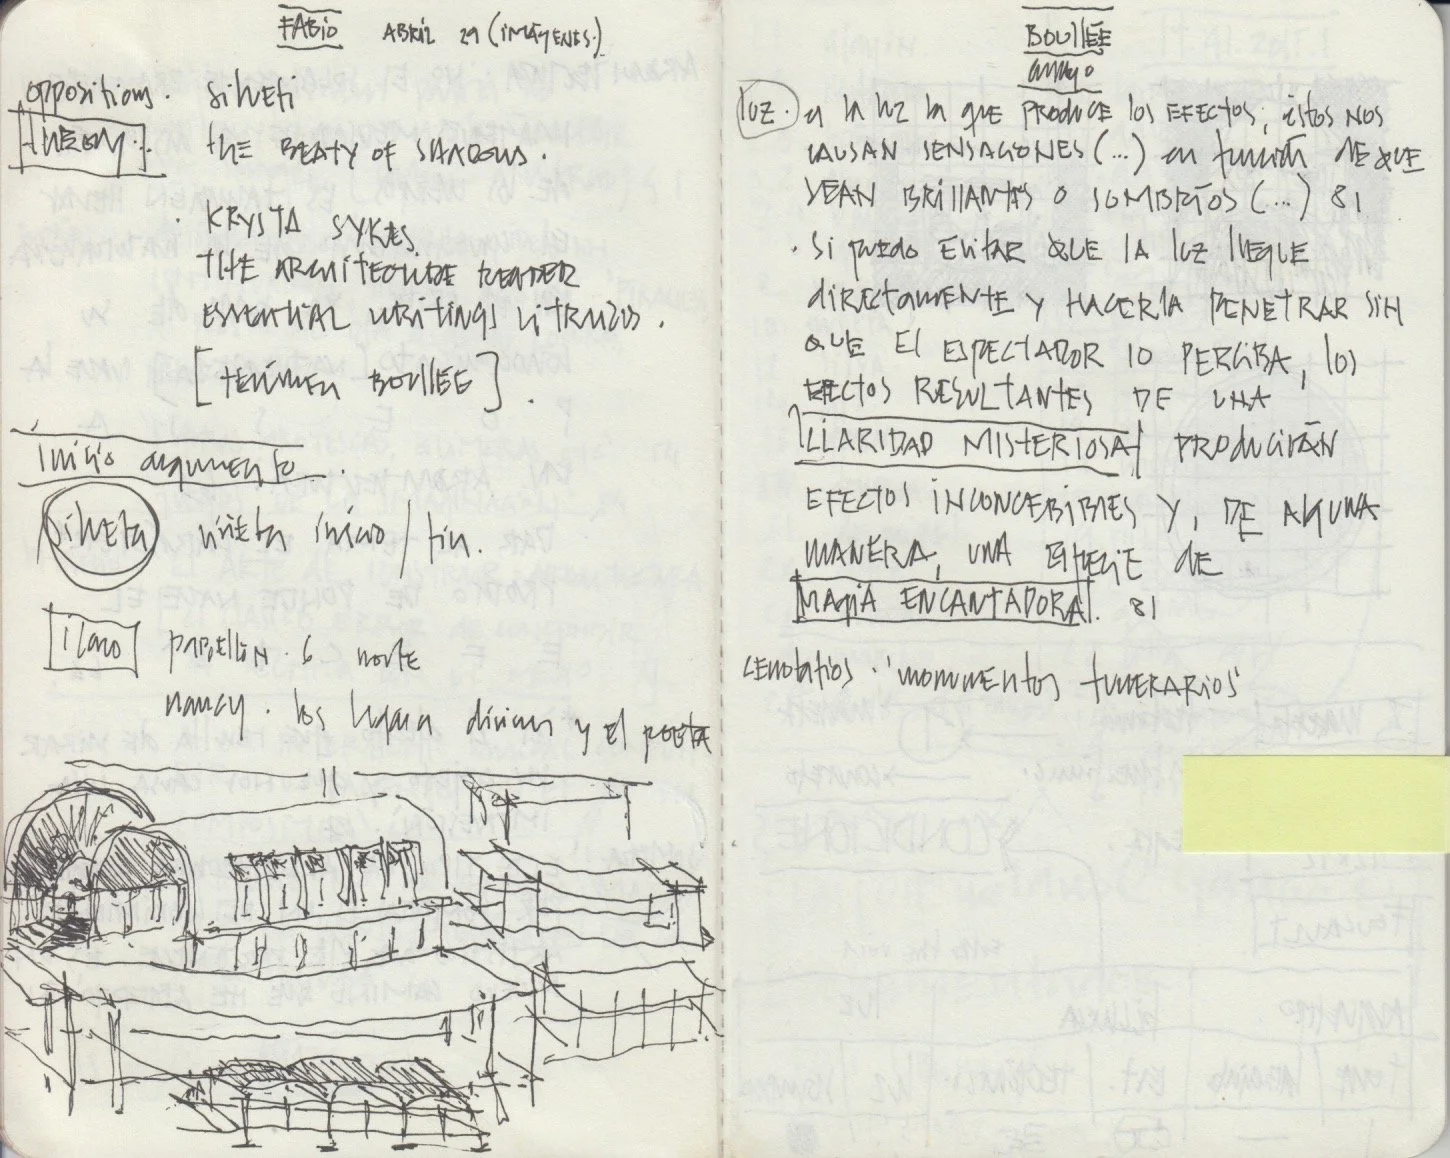 FABIO ABRIL 29 (IMÁGENES.)
oppositions. Silveti
theory. the BEATY OF SHADOWS.
. KRYSTA SYKES
THE ARCHITECTURE READER
ESSENTIAL WRITINGS VITRUVIUS.
[
BOULLÉE].
inicio argumento.
silueta viñeta inicio / fin.
PABELLÓN. 6 norte
nancy. los y EL POETA
BOULLÉE
ensayo
luz. es la luz la que PRODUCE los EFECTOS; éstos NOS
CAUSAN SENSACIONES (...) en función DE QUE
SEAN BRILLANTES O SOMBRÍOS (...) 81
. Si puedo EVITAR QUE LA LUZ llegue
DIRECTAMENTE Y HACERLA PENETRAR SIN
QUE EL ESPECTADOR lo PERCIBA, los
EFECTOS RESULTANTES DE UNA
CLARIDAD MISTERIOSA PRODUCIRÁN
EFECTOS INCONCEBIBLES Y, DE ALGUNA
MANERA, UNA ESPECIE DE
MAGIA ENCANTADORA. 81
CENOTAFIOS. "monumentos FUNERARIOS"